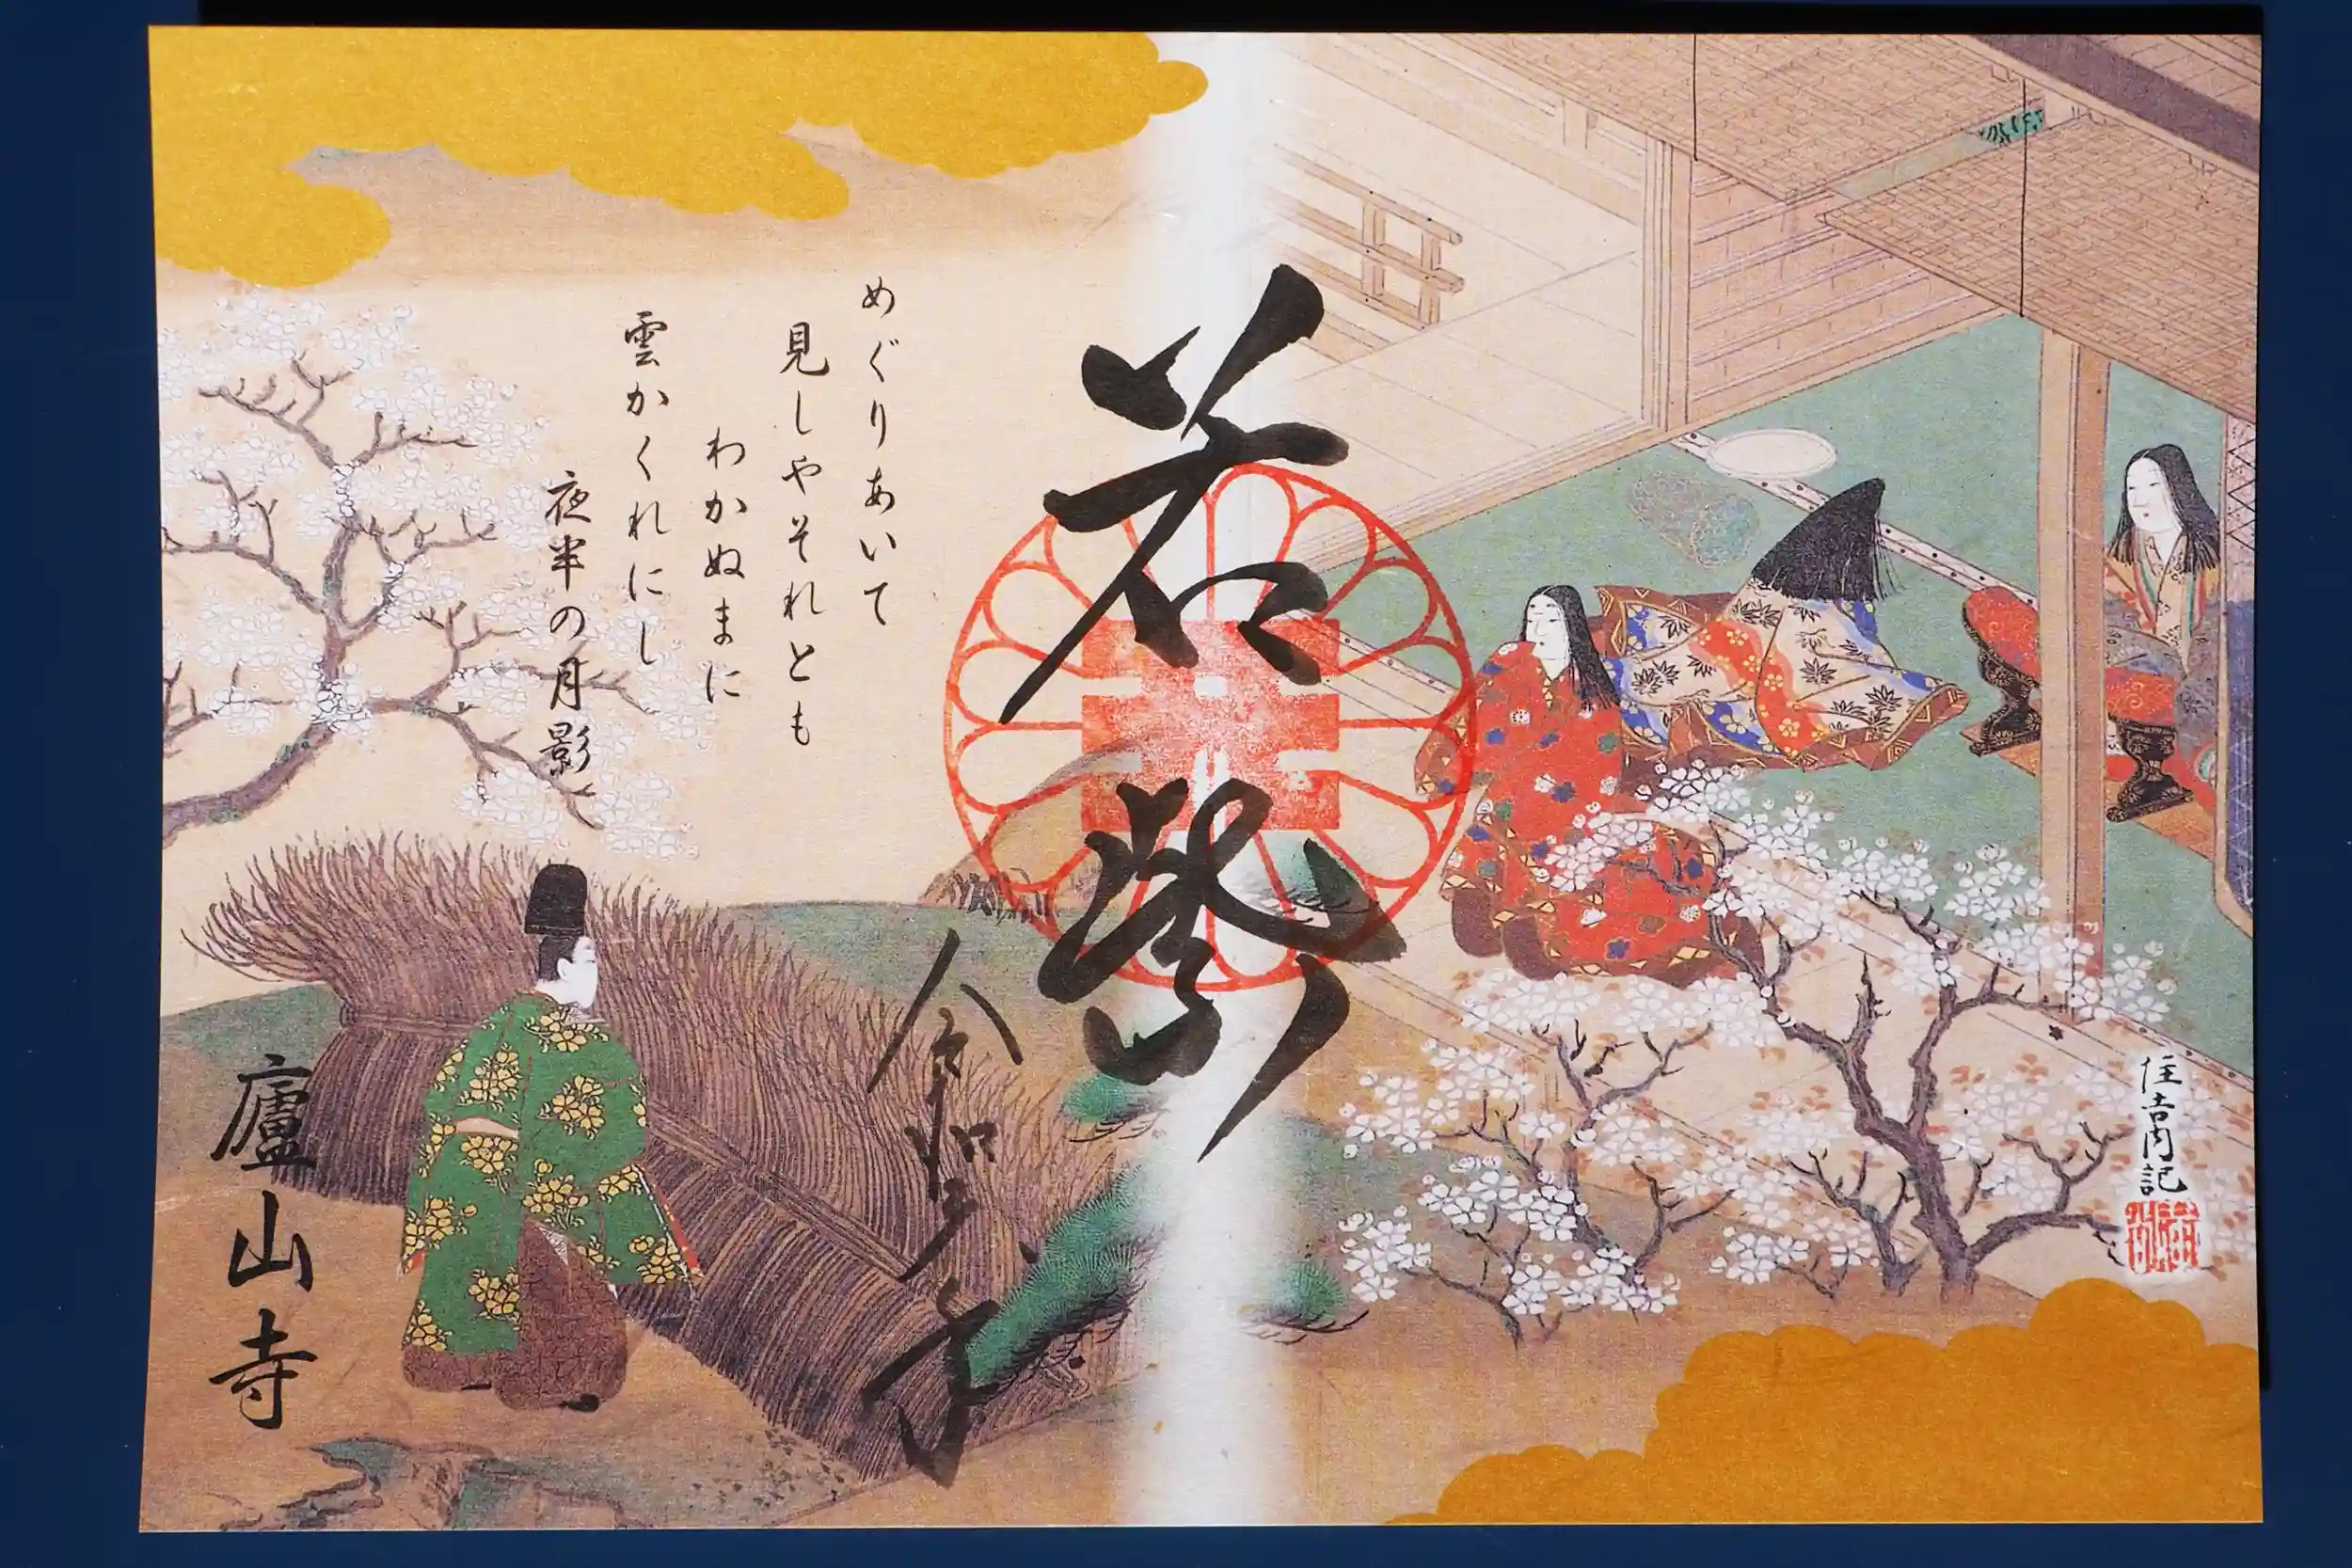 住吉内記
若紫
令和年
めぐりあいて
見しやそれとも
わかぬまに
雲かくれにし
夜半の月影
廬山寺